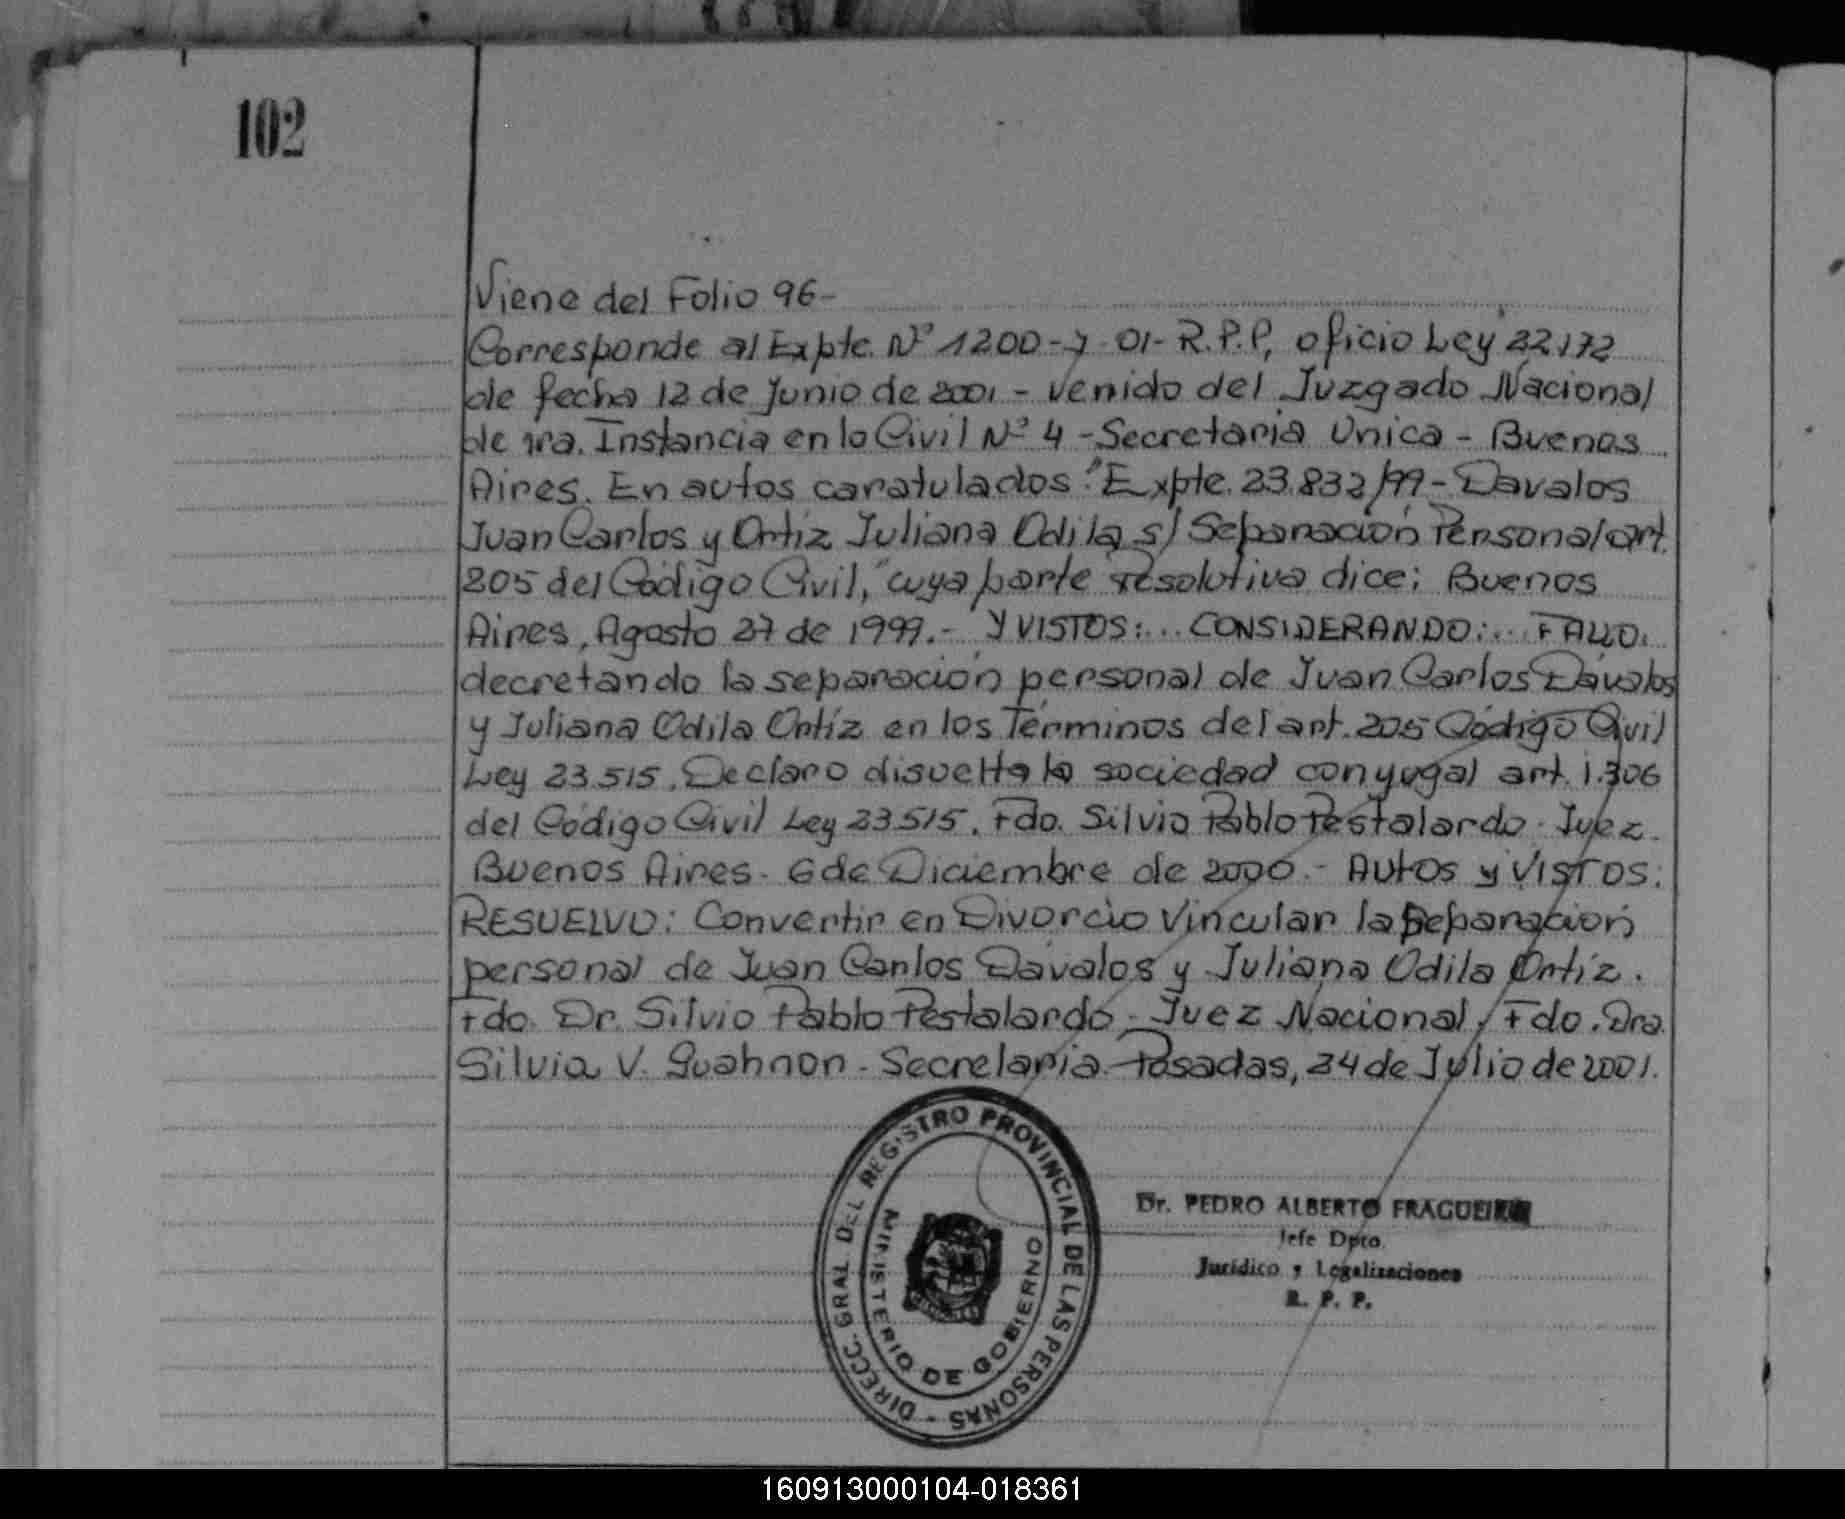 102
Viene del Folio 96-
Corresponde al Expte. Nº 1200-J-01-R.P.P, oficio Ley 22.172
de fecha 12 de Junio de 2001 - venido del Juzgado Nacional
de 1ra. Instancia en lo Civil Nº 4 - Secretaria Unica - Buenos
Aires. En autos caratulados: "Expte. 23.832/99 - Davalos
Juan Carlos y Ortiz Juliana Odila s/ Separación Personal art.
205 del Código Civil," cuya parte resolutiva dice: Buenos
Aires, Agosto 27 de 1999.- Y VISTOS:.. CONSIDERANDO:.. FALLO:
decretando la separación personal de Juan Carlos Dávalos
y Juliana Odila Ortíz en los Términos del art. 205 Código Civil
Ley 23.515. Declaro disuelta la sociedad conyugal art. 1.306
del Código Civil Ley 23515. Fdo. Silvio Pablo Pestalardo - Juez.
Buenos Aires - 6 de Diciembre de 2000.- AUTOS y VISTOS:
RESUELVO: Convertir en Divorcio Vincular la separación
personal de Juan Carlos Dávalos y Juliana Odila Ortíz.
Fdo. Dr. Silvio Pablo Pestalardo - Juez Nacional, Fdo. Dra.
Silvia V. Guahnon - Secretaria. Posadas, 24 de Julio de 2001.
DIRECC. GRAL DEL REGISTRO PROVINCIAL DE LAS PERSONAS -
MINISTERIO DE GOBIERNO
Dr. PEDRO ALBERTO FRAGUEIRO
Jefe Dpto.
Jurídico y Legalizaciones
R. P. P.
160913000104-018361